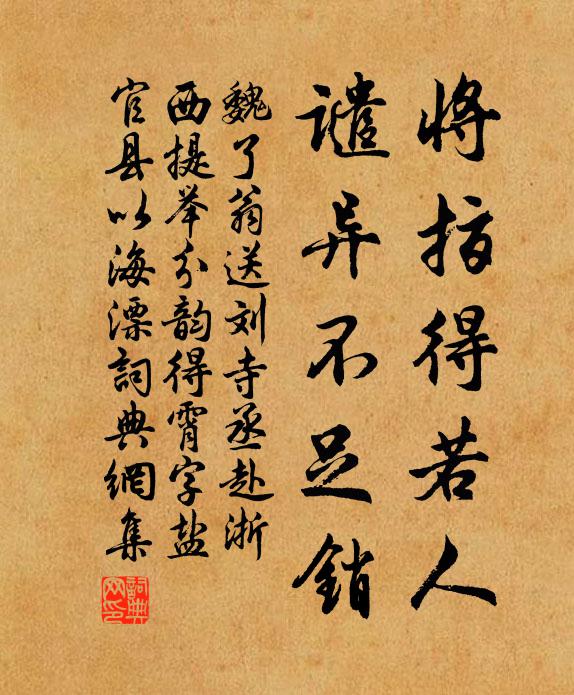 将指得若人
谴异不足銷
魏了翁送刘寺丞赴浙
西提举分韵得霄字盐
官县以海漂詞典網集
詞典网印